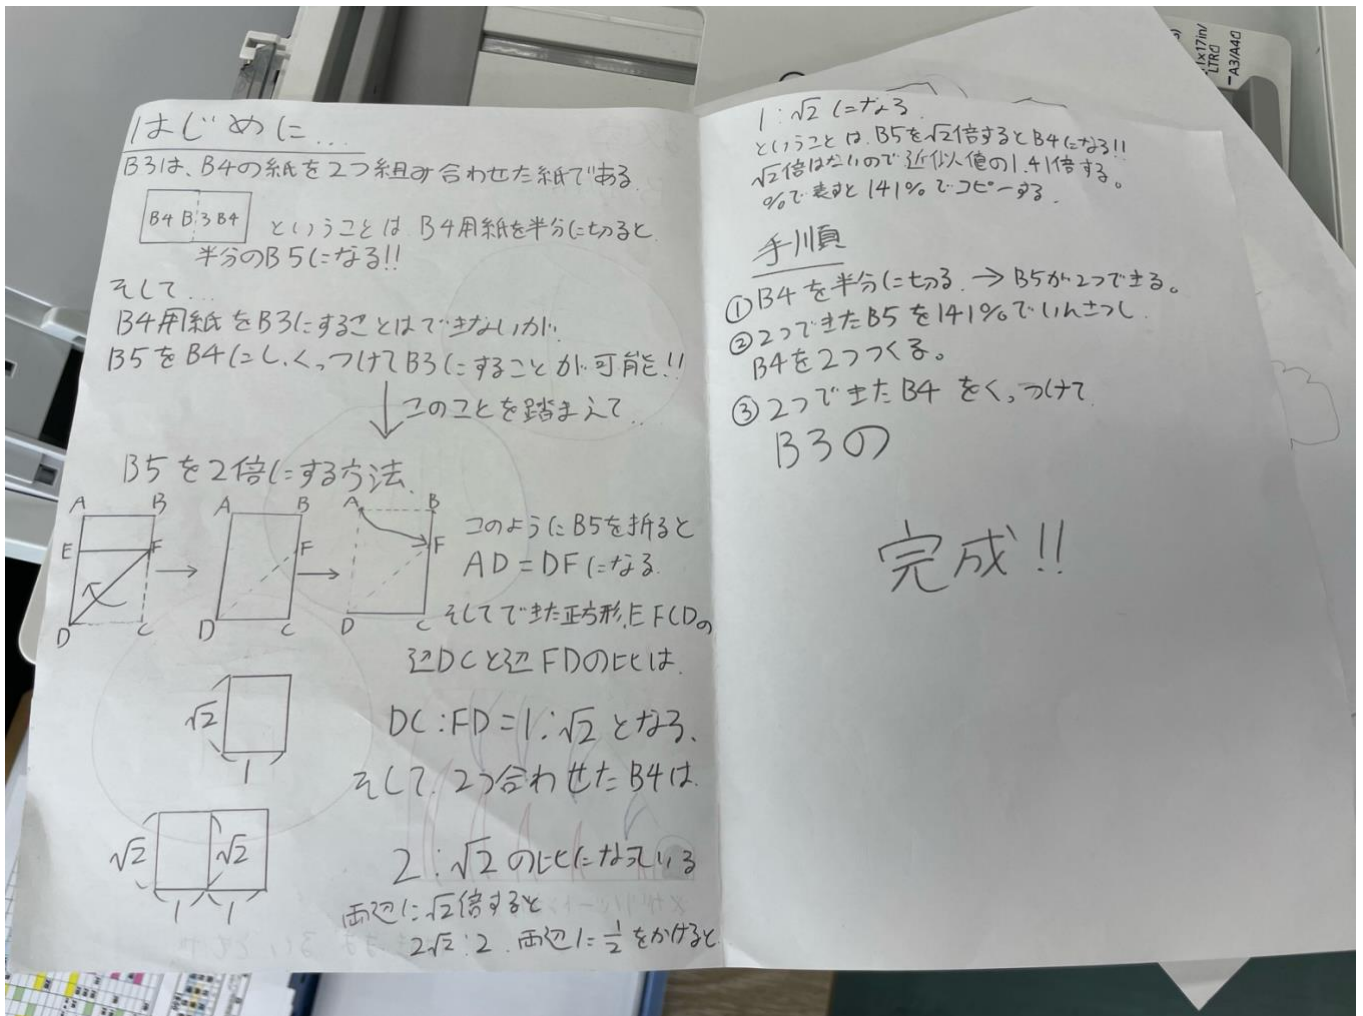 はじめに...
B3は、B4の紙を2つ組み合わせた紙である
B4 B 3 B4
ということは B4用紙を半分に切ると
半分のB5になる!!
そして...
B4用紙をB3にすることはできないが、
B5をB4にし、くっつけてB3にすることが可能!!
このことを踏まえて...
B5を2倍にする方法
A B
E F
D C
A B
F
D C
A B
F
D C
このようにB5を折ると
AD=DFになる
そしてできた正方形、EFCDの
辺DCと辺FDの比は
√2
1
DC:FD=1:√2となる、
そして、2つ合わせたB4は
√2 √2
1 1
2:√2の比になっている
両辺に√2倍すると
2√2:2 両辺に1/2をかけると
1:√2になる
ということは、B5を√2倍するとB4になる!!
√2倍はないので近似値の1.41倍する。
%で表すと141%でコピーする.
手順
①B4を半分に切る→B5が2つできる。
②2つできたB5を141%でいんさつし
B4を2つつくる。
③2つできたB4をくっつけて
B3の
完成!!
1x17in/
LTR
-A3/A4